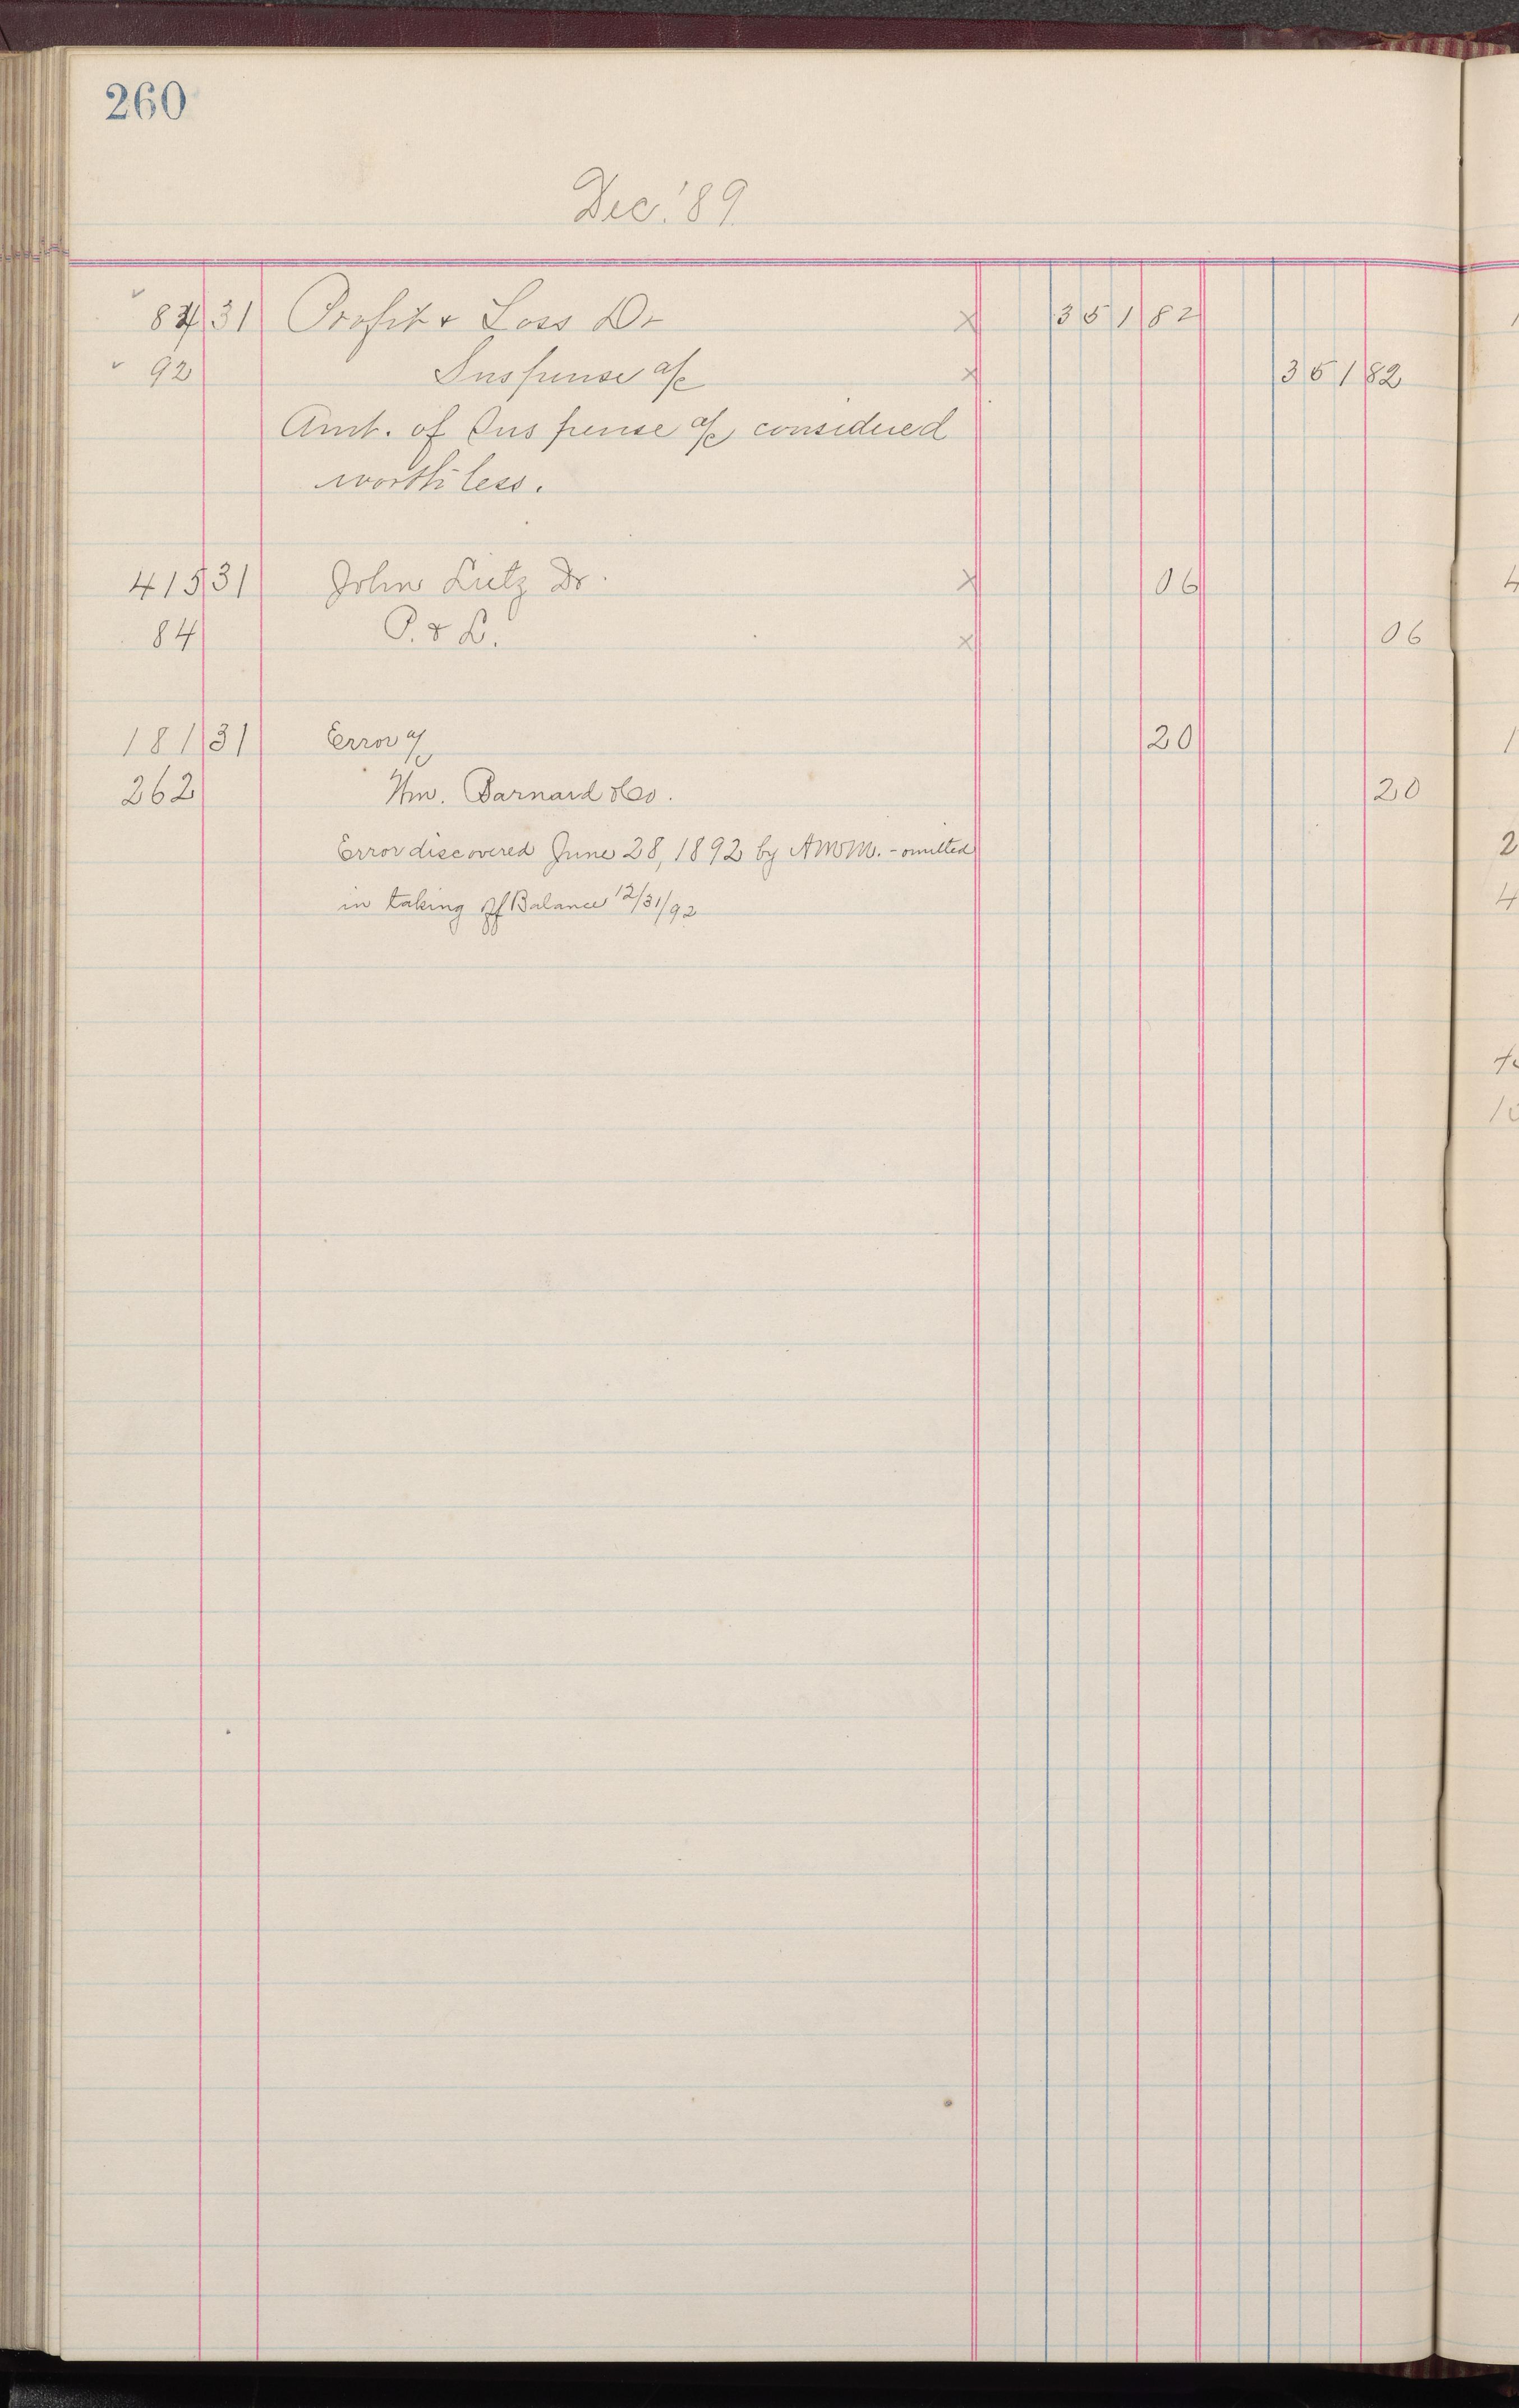 260
Dec. '89
✓ 84 31 Profit & Loss Dr × 351 82
✓ 92 Suspense a/c × 351 82
Amt. of Suspense a/c considered
worthless.
415 31 John Lutz Dr. × 06
84 P. & L. × 06
181 31 Error a/c 20
262 Wm. Barnard & Co. 20
Error discovered June 28, 1892 by AMM. - omitted
in taking off Balance 12/31/92